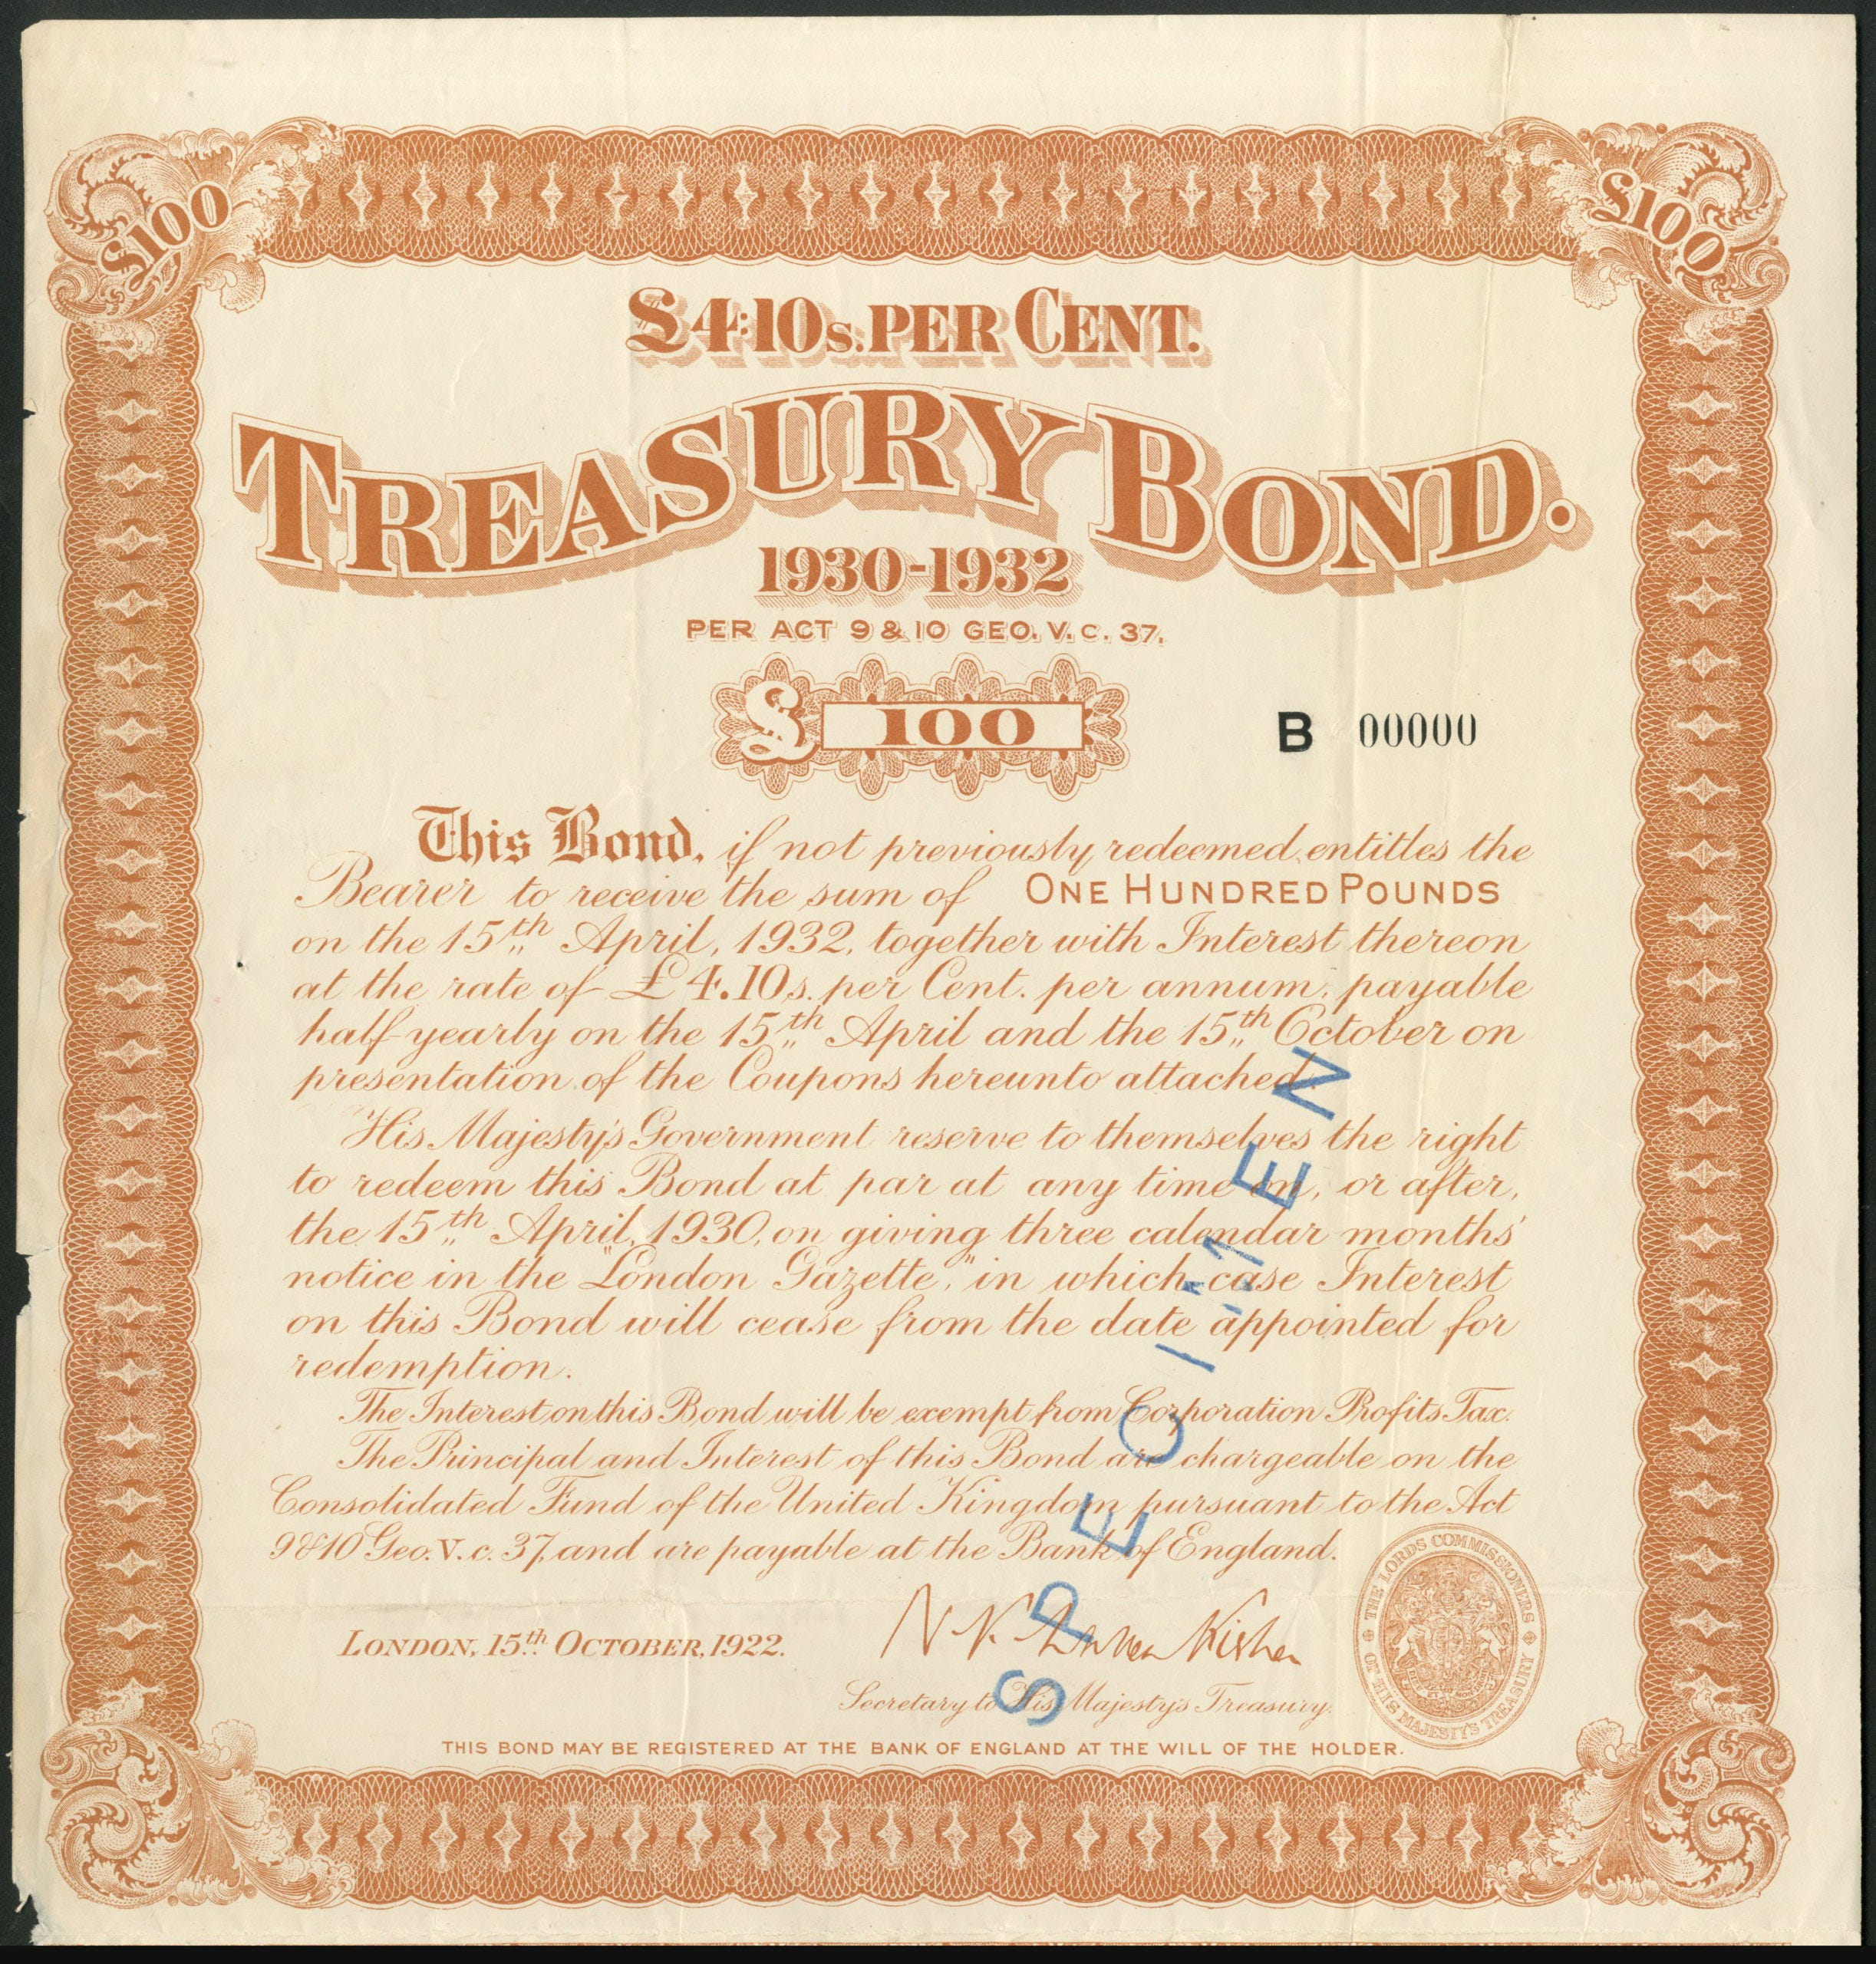 £100
£100
£4:10s. PER CENT.
TREASURY BOND.
1930-1932
PER ACT 9 & 10 GEO. V. C. 37.
£ 100
B 00000
This Bond, if not previously redeemed, entitles the
Bearer to receive the sum of ONE HUNDRED POUNDS
on the 15th April, 1932, together with Interest thereon
at the rate of £4.10s. per Cent. per annum, payable
half-yearly on the 15th April and the 15th October on
presentation of the Coupons hereunto attached.
His Majesty's Government reserve to themselves the right
to redeem this Bond at par at any time on, or after,
the 15th April, 1930, on giving three calendar months'
notice in the "London Gazette," in which case Interest
on this Bond will cease from the date appointed for
redemption.
The Interest on this Bond will be exempt from Corporation Profits Tax.
The Principal and Interest of this Bond are chargeable on the
Consolidated Fund of the United Kingdom pursuant to the Act
9 & 10 Geo. V. c. 37, and are payable at the Bank of England.
SPECIMEN
LONDON, 15th OCTOBER, 1922.
N. F. Warren Fisher
Secretary to His Majesty's Treasury.
THE LORDS COMMISSIONERS OF HIS MAJESTY'S TREASURY
THIS BOND MAY BE REGISTERED AT THE BANK OF ENGLAND AT THE WILL OF THE HOLDER.